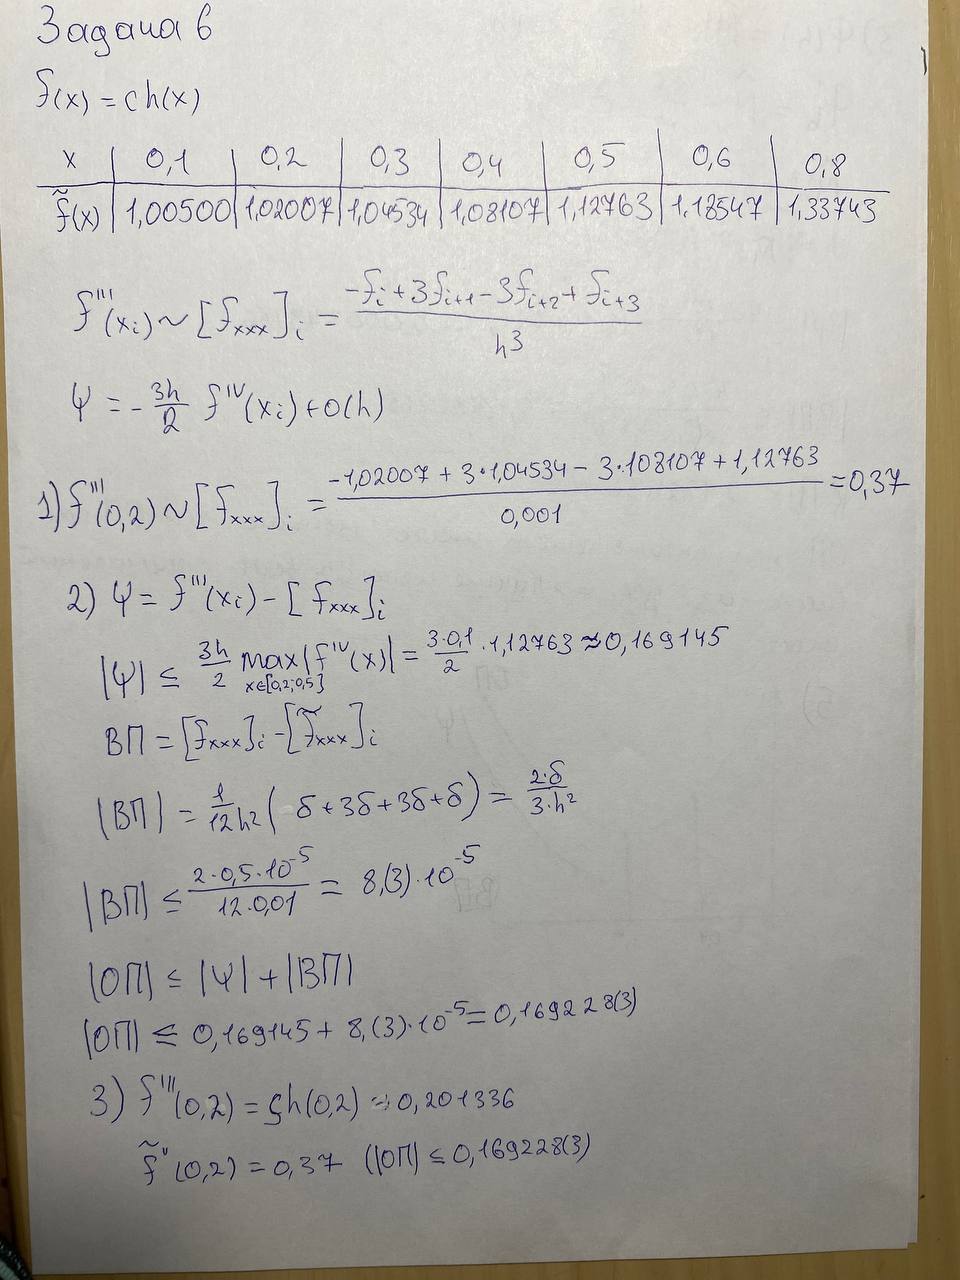 Задача 6
f(x) = ch(x)
x | 0,1 | 0,2 | 0,3 | 0,4 | 0,5 | 0,6 | 0,8
f̃(x) | 1,00500 | 1,02007 | 1,04534 | 1,08107 | 1,12763 | 1.18547 | 1,33743
f'''(xᵢ) ~ [fₓₓₓ]ᵢ = (-fᵢ + 3fᵢ₊₁ - 3fᵢ₊₂ + fᵢ₊₃) / h³
Ψ = - 3h/2 f^IV(xᵢ) + o(h)
1) f'''(0,2) ~ [fₓₓₓ]ᵢ = (-1,02007 + 3·1,04534 - 3·108107 + 1,12763) / 0,001 = 0,37
2) Ψ = f'''(xᵢ) - [fₓₓₓ]ᵢ
|Ψ| ≤ 3h/2 max |f^IV(x)| = 3·0,1/2 · 1,12763 ≈ 0,169145
x∈[0,2;0,5]
ВП = [fₓₓₓ]ᵢ - [f̃ₓₓₓ]ᵢ
|ВП| = 1/12h² (δ + 3δ + 3δ + δ) = 2·δ/3·h²
|ВП| ≤ 2·0,5·10⁻⁵/12·0,01 = 8,(3)·10⁻⁵
|ОП| ≤ |Ψ| + |ВП|
|ОП| ≤ 0,169145 + 8,(3)·10⁻⁵ = 0,169228(3)
3) f'''(0,2) = sh(0,2) ≈ 0,201336
f̃''(0,2) = 0,37 (|ОП| ≤ 0,169228(3)